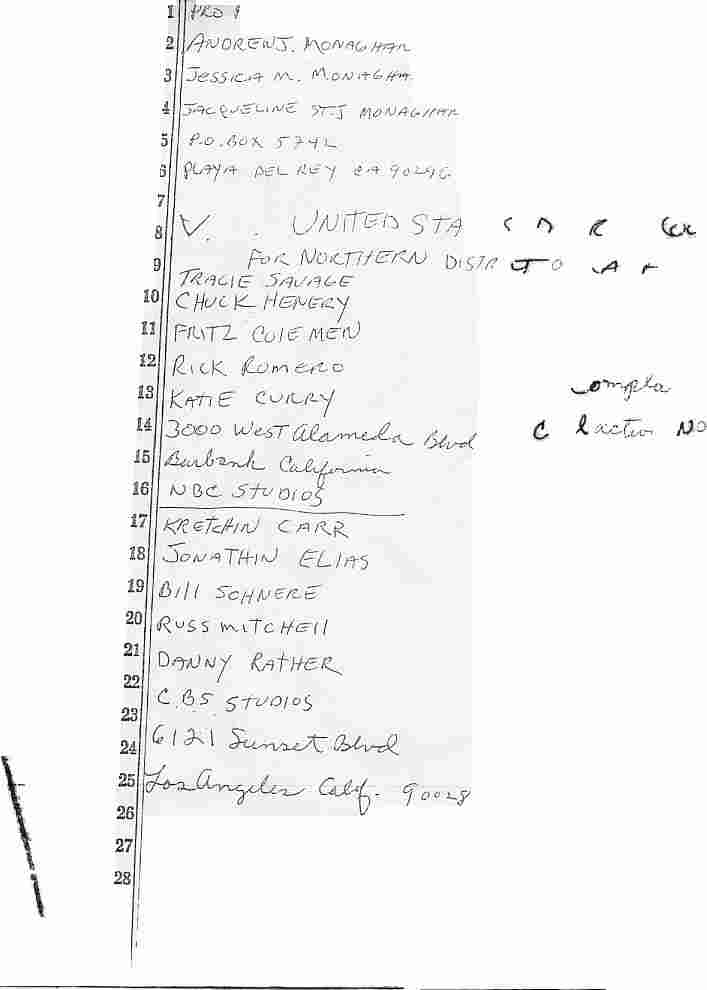 1 PRO
2 ANDREW J. MONAGHAN
3 Jessica M. MONAGHA
4 JACQUELINE ST.J MONAGHAN
5 P.O. BOX 5742
6 PLAYA DEL REY CA 90296
7
8 V. UNITED STA
9 FOR NORTHERN DISTR
TRACIE SAVAGE
10 CHUCK HENERY
11 FRITZ COLEMEN
12 RICK ROMERO
13 KATIE CURRY
Compla
14 3000 West Alameda Blvd
C action NO
15 Burbank California
16 NBC STUDIOS
17 KRETCHIN CARR
18 JONATHIN ELIAS
19 Bill SOHNERE
20 RUSS MITCHEll
21 DANNY RATHER
22 C.B.S STUDIOS
23
24 6121 Sunset Blvd
25 Los Angeles Calif. 90028
26
27
28